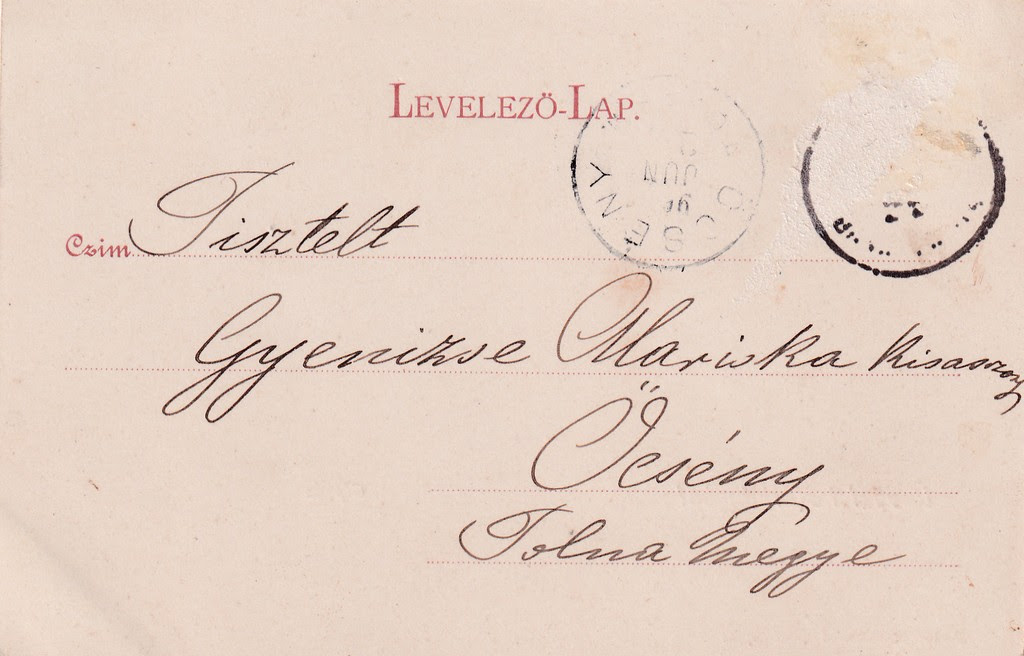 LEVELEZŐ-LAP.
Czim Tisztelt
Gyenizse Mariska kisasszony
Őcsény
Tolna megye
JUN